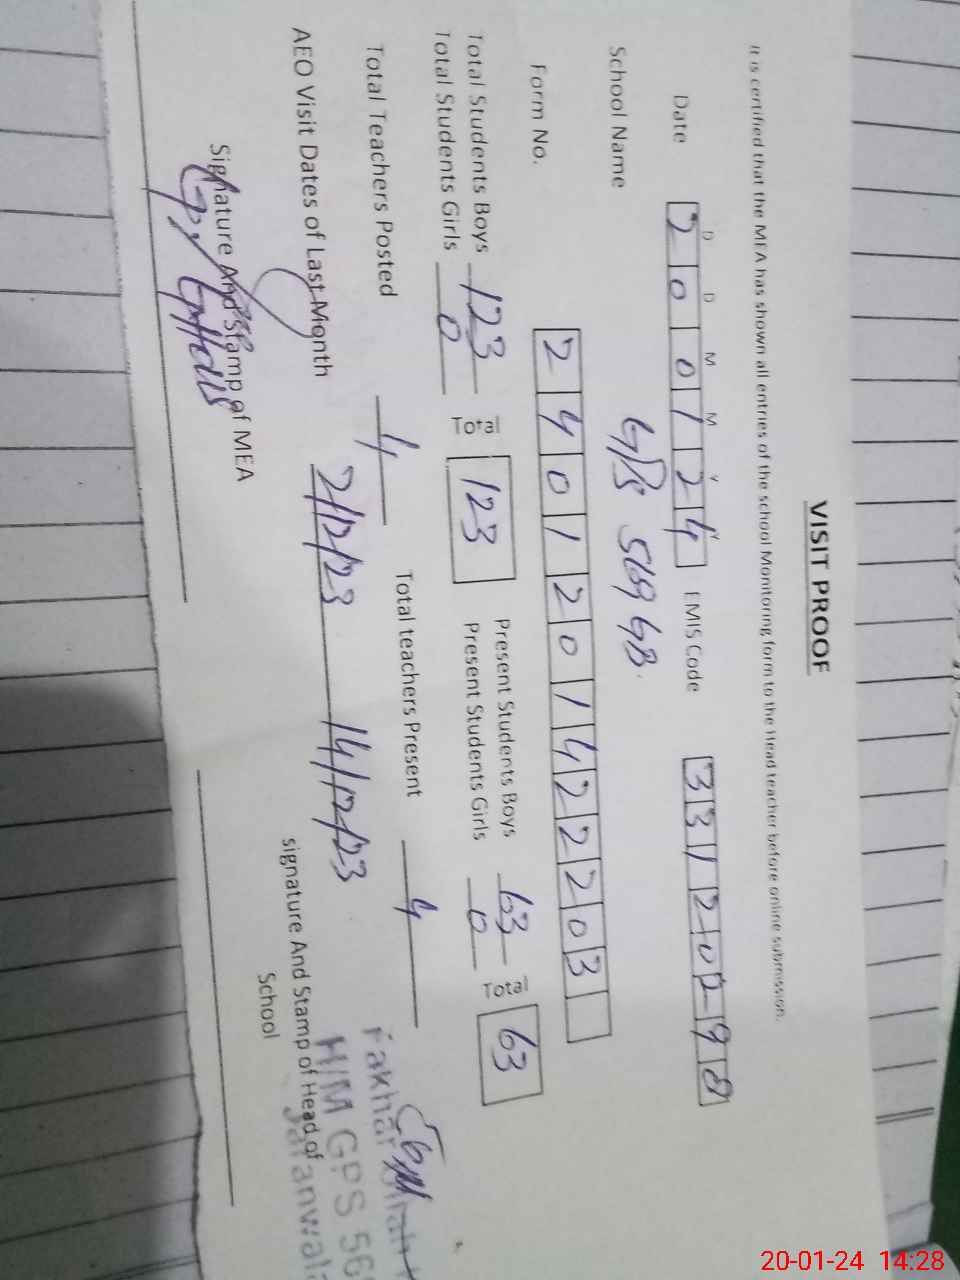 VISIT PROOF
It is certified that the MEA has shown all entries of the school Monitoring form to the Head teacher before online submission.
D D M M Y Y
Date 20 01 24 EMIS Code 33120298
School Name GPS 569 GB.
Form No. 2401201422203
Total Students Boys 123 Total 123 Present Students Boys 63 Total 63
Total Students Girls 0 Present Students Girls 0
Total Teachers Posted 4 Total teachers Present 4
AEO Visit Dates of Last Month 2/12/23 14/12/23
Signature And Stamp of MEA
signature And Stamp of Head of School
Fakhar
H/M GPS 569
Jaranwala
20-01-24 14:28